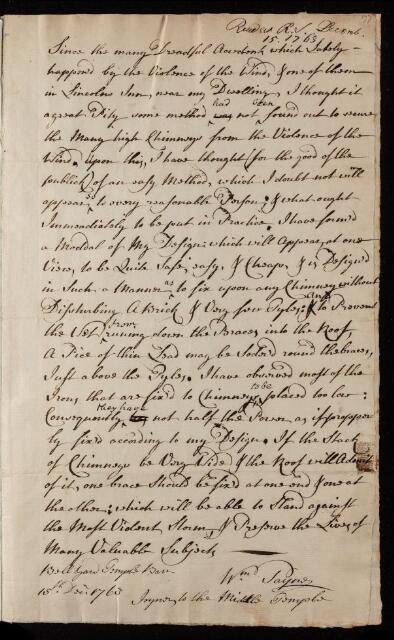 Read at R.S. Decemb.
15. 1763
Since the many Dreadful Accidents, which Lately
happen'd by the Violence of the Wind, & one of them
in Lincolns Inn, near my Dwelling, I thought it
a great Pity some method had not been found out to secure
the Many high Chimneys from the Violence of the
Wind. upon this, I have thought (for the good of the
publick) of an easy Method, which I doubt not will
appear so to every reasonable Person; & what ought
Immediately to be put in Practice. I have found
a Moddal of My Design: which will Appear, at one
View, to be Quite Safe, easy, & Cheap, & is Design'd
in Such a Manner as to fix upon any Chimney without
Disturbing A Brick & Very few Tyles: And to Prevent
the Wet from runing down the Braces into the Roof,
A Pice of thin Lead may be Soder'd round the braces,
Just above the Tyles. I have observed most of the
Irons, that are fix'd to Chimneys, to be placed too low:
Consequently they have not half the Power, as if proper
ly fix'd according to my Design. If the Stack
of Chimneys be Very Wide & the Roof will Admit
of it, one brace Should be fix'd at one end & one at
the other; which will be able to Stand against
the Most Violent Storm, & Preserve the Lives of
Many Valuable Subjects
Bell Yard Temple Barr
Wm Payne
15th Decr 1763
Joyner to the Middle Temple